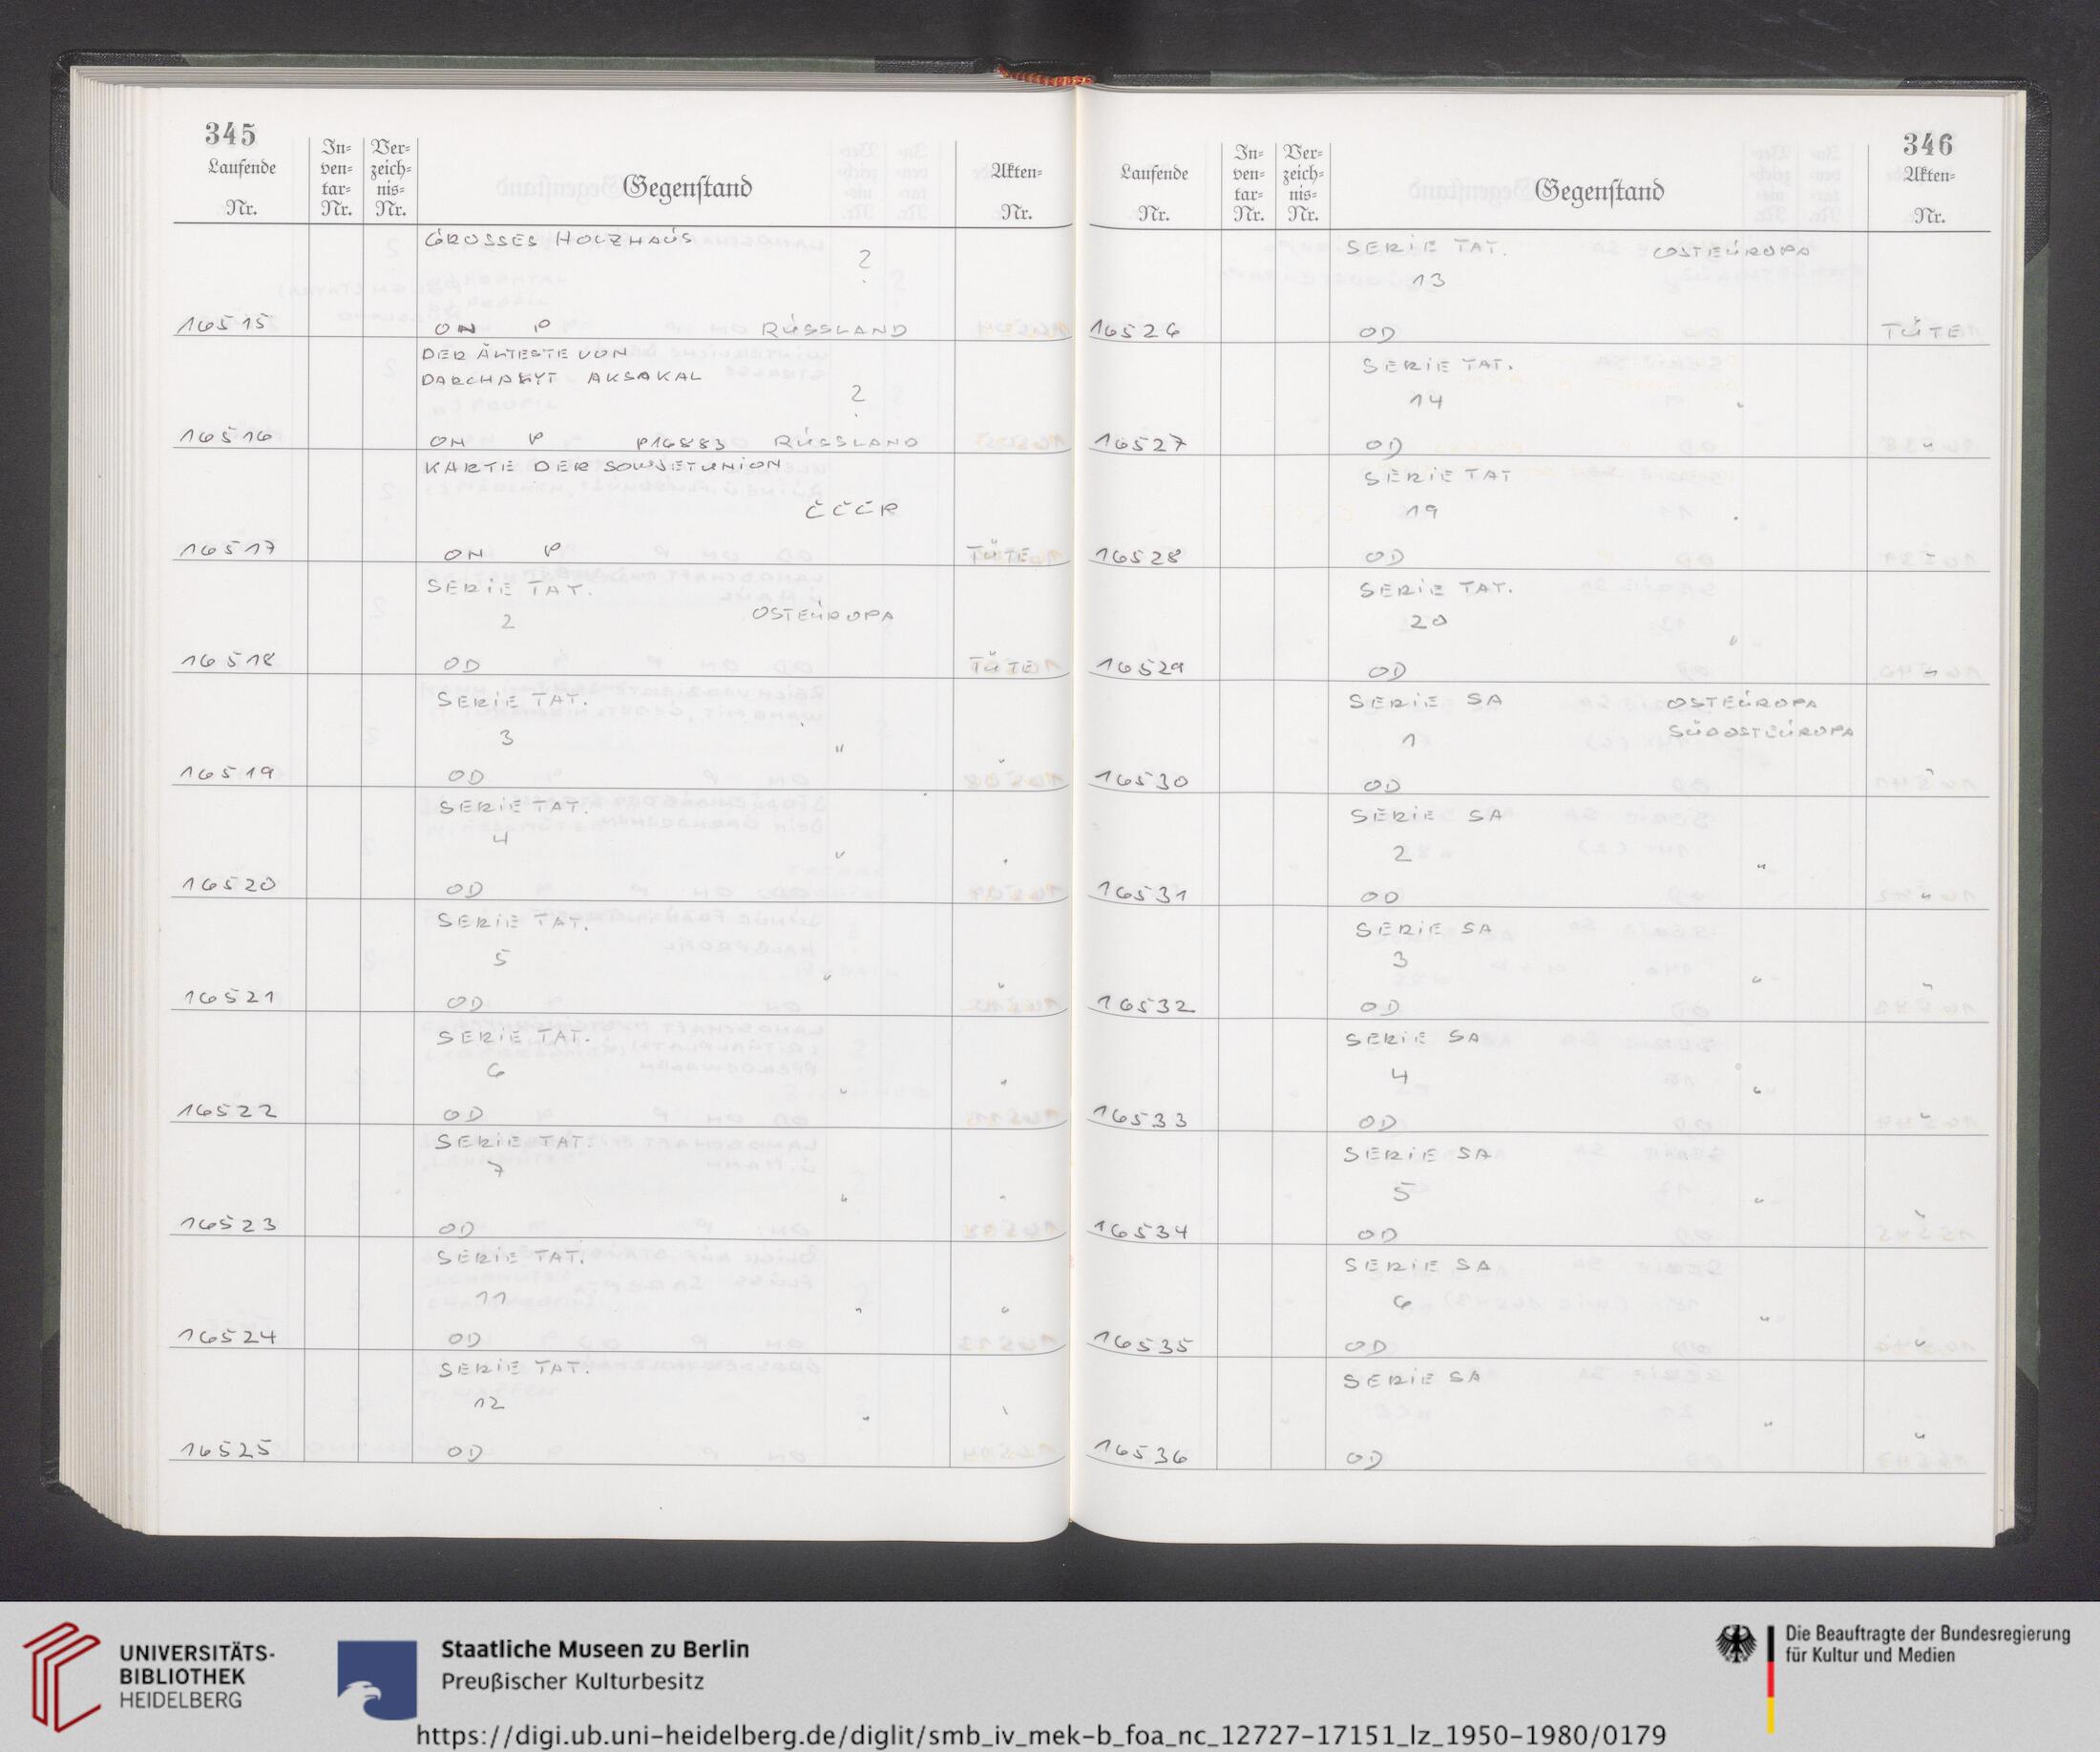 345
Laufende Nr.
In-ven-tar-Nr.
Ver-zeich-nis-Nr.
Gegenstand
Akten-Nr.
GROSSES HOLZHAUS
?
16515 ON P RUSSLAND
DER ÄLTESTE VON
AKSAKAL
?
16516 ON P P16883 RUSSLAND
KARTE DER SOWJETUNION
CCCP
16517 ON P TÜTE
SERIE TAT.
2 OSTEUROPA
16518 OD TÜTE
SERIE TAT.
3 "
16519 OD "
SERIE TAT.
4 "
16520 OD "
SERIE TAT.
5 "
16521 OD "
SERIE TAT.
6 "
16522 OD "
SERIE TAT.
7 "
16523 OD "
SERIE TAT.
11 "
16524 OD "
SERIE TAT.
12 "
16525 OD "
346
Laufende Nr.
In-ven-tar-Nr.
Ver-zeich-nis-Nr.
Gegenstand
Akten-Nr.
SERIE TAT. OSTEUROPA
13
16526 OD TÜTE
SERIE TAT.
14 "
16527 OD "
SERIE TAT
19 "
16528 OD "
SERIE TAT.
20 "
16529 OD "
SERIE SA OSTEUROPA
1 SÜDOSTEUROPA
16530 OD "
SERIE SA
2 "
16531 OD "
SERIE SA
3 "
16532 OD "
SERIE SA
4 "
16533 OD "
SERIE SA
5 "
16534 OD "
SERIE SA
6 "
16535 OD "
SERIE SA
"
16536 OD "
UNIVERSITÄTS-
BIBLIOTHEK
HEIDELBERG
Staatliche Museen zu Berlin
Preußischer Kulturbesitz
Die Beauftragte der Bundesregierung
für Kultur und Medien
https://digi.ub.uni-heidelberg.de/diglit/smb_iv_mek-b_foa_nc_12727-17151_lz_1950-1980/0179